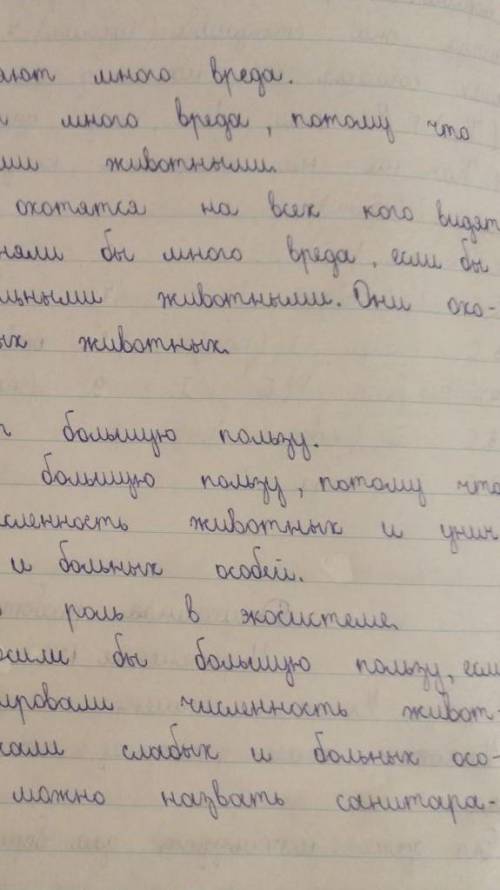 ают много вреда.
и много вреда, потому что
ими животными.
охотятся на всех кого видят
няли бы много вреда, если бы
щными животными. Они охо-
ых животных.
т большую пользу.
большую пользу, потому что
исленность животных и унич
и больных особей.
ь роль в экосистеме.
осили бы большую пользу, если
лировали численность живот-
жали слабых и больных осо-
можно назвать санитара-